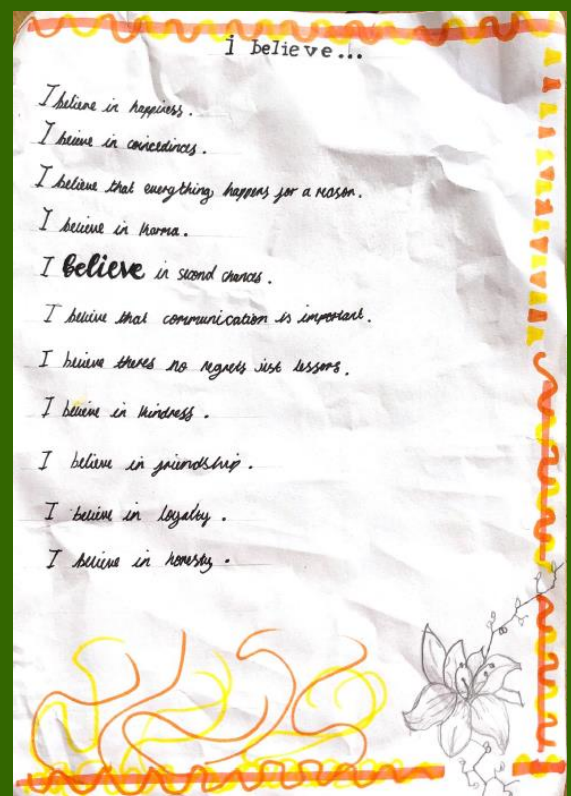 i believe...
I believe in happiness.
I believe in coincedinces.
I believe that everything, happens for a reason.
I believe in karma.
I believe in second chances.
I believe that communication is important.
I believe theres no regrets just lessons.
I believe in kindness.
I believe in friendship.
I believe in loyalty.
I believe in honesty.